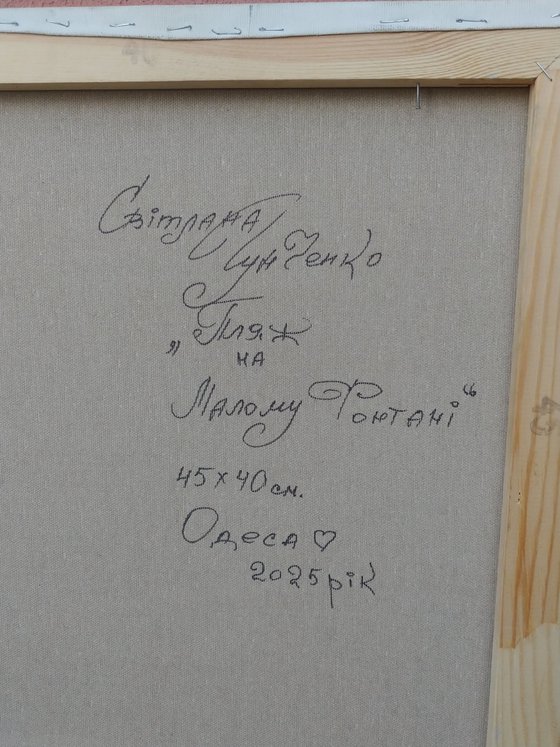 Світлана
Гунченко
„Пляж
на
Малому Фонтані“
45х40см.
Одеса ♡
2025рік